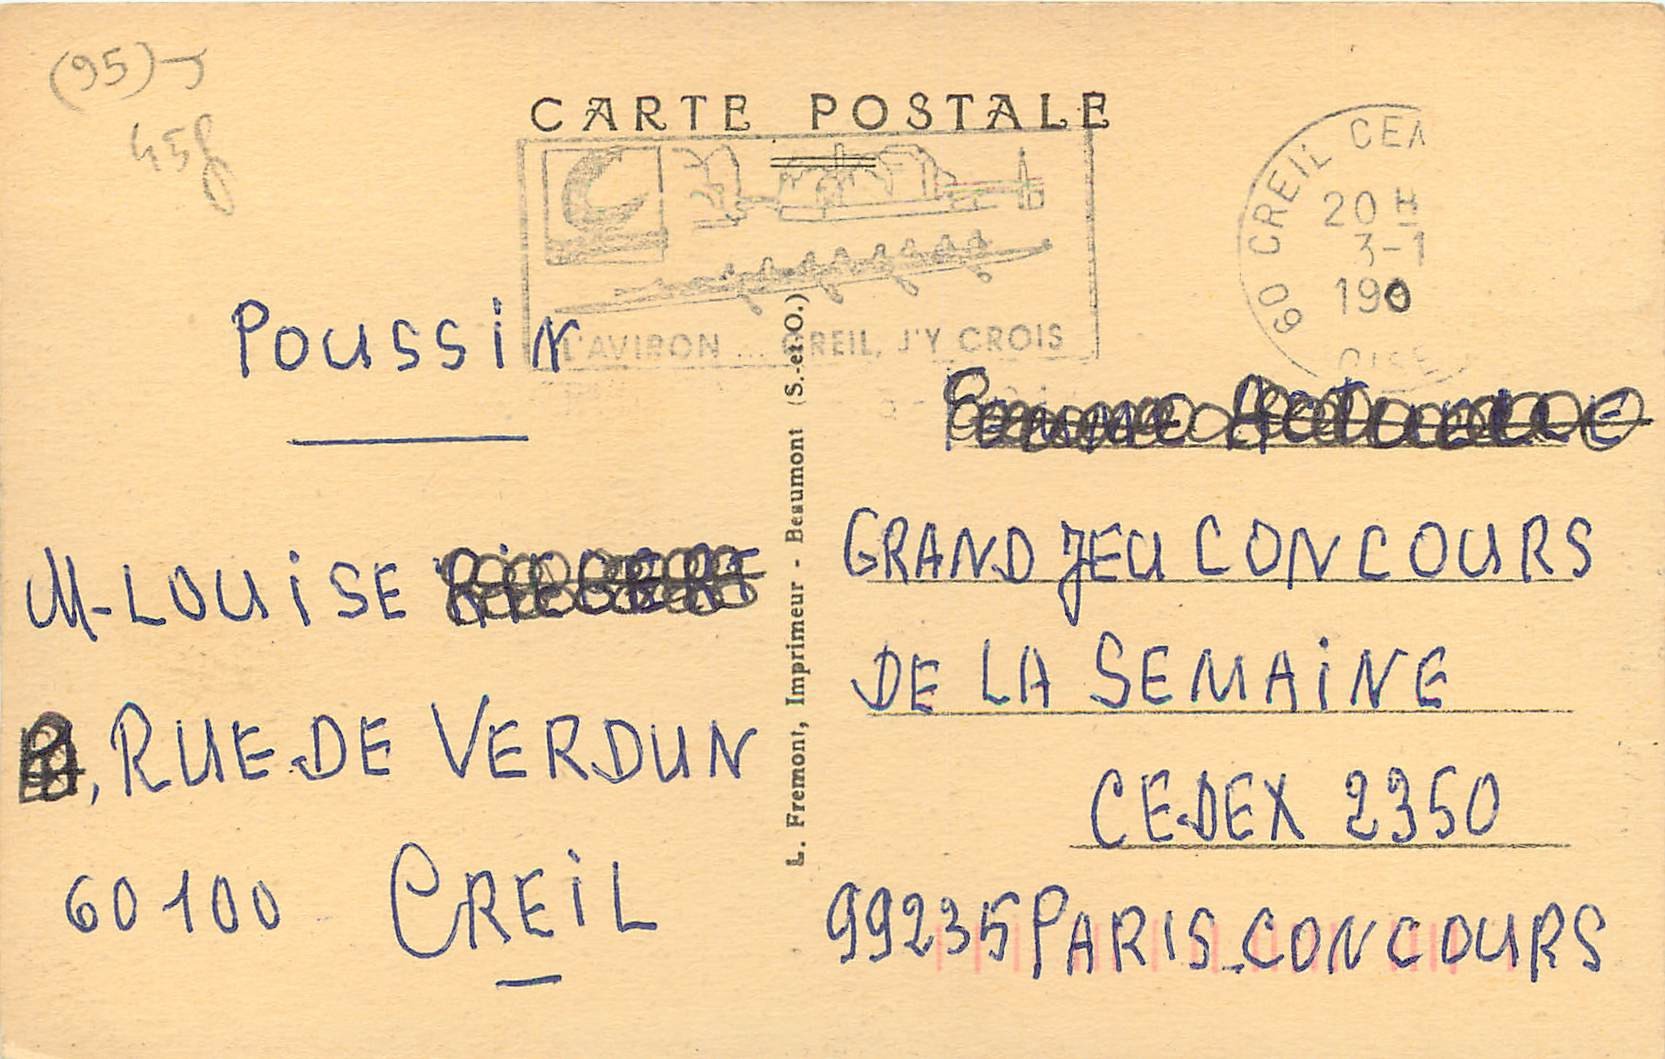 (95)
45f
CARTE POSTALE
L'AVIRON ... CREIL, J'Y CROIS
60 CREIL CEN
20 H
3-1
190
OISE
POUSSIN
M-LOUISE
, RUE DE VERDUN
60100 CREIL
L. Fremont, Imprimeur - Beaumont (S.-et-O.)
GRAND JEU CONCOURS
DE LA SEMAINE
CEDEX 2350
99235 PARIS_CONCOURS